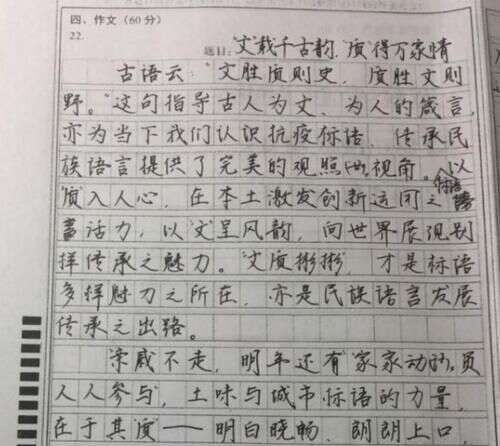 四、作文（60分）
22.
题目："文"载千古韵，"质"得万家情
古语云："文胜质则史，质胜文则
野。"这句指导古人为文、为人的箴言，
亦为当下我们认识抗疫标语、传承民
族语言提供了完美的观照视角。以
"质"入人心，在本土激发创新运用之
活力，以"文"呈风韵，向世界展现别
样传承之魅力。"文质彬彬"，才是标语
多样魅力之所在，亦是民族语言发展
传承之出路。
"亲戚不走，明年还有"家家动员，
人人参与，土味与城市标语的力量，
在于其"质"——明白晓畅，朗朗上口，